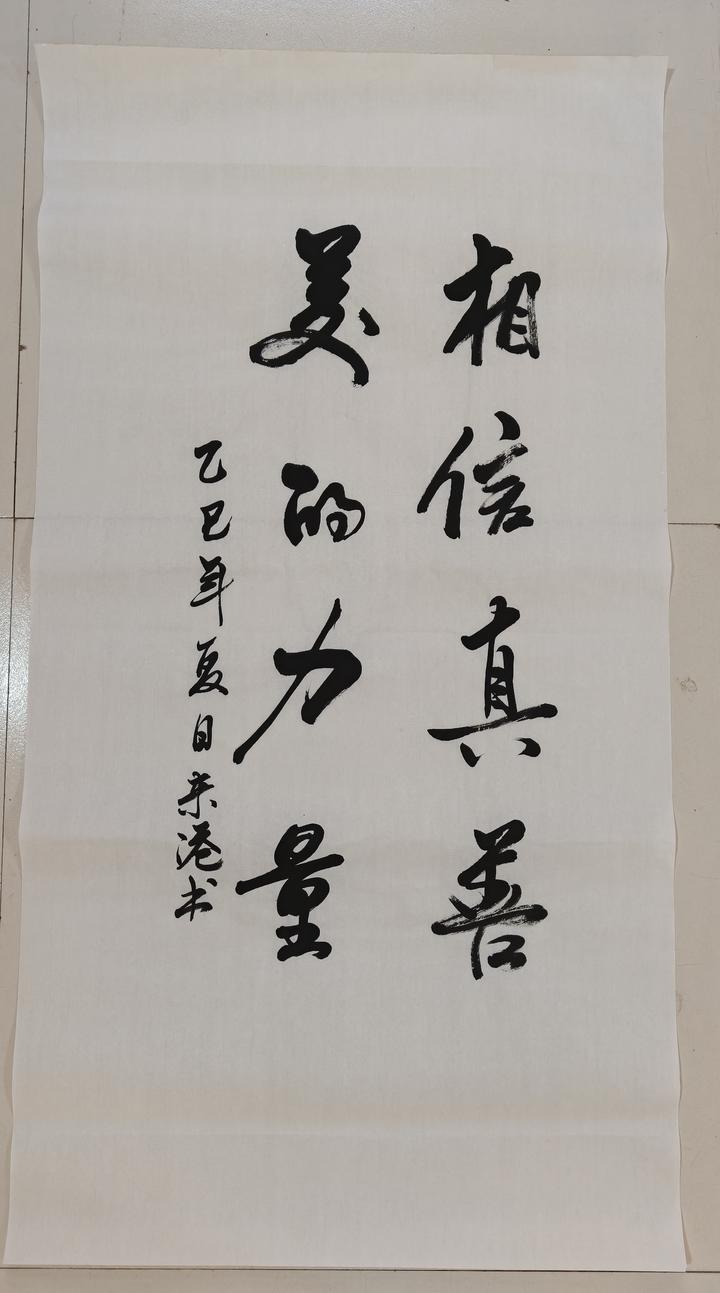 相信真善
美的力量
乙巳年夏日宗港书